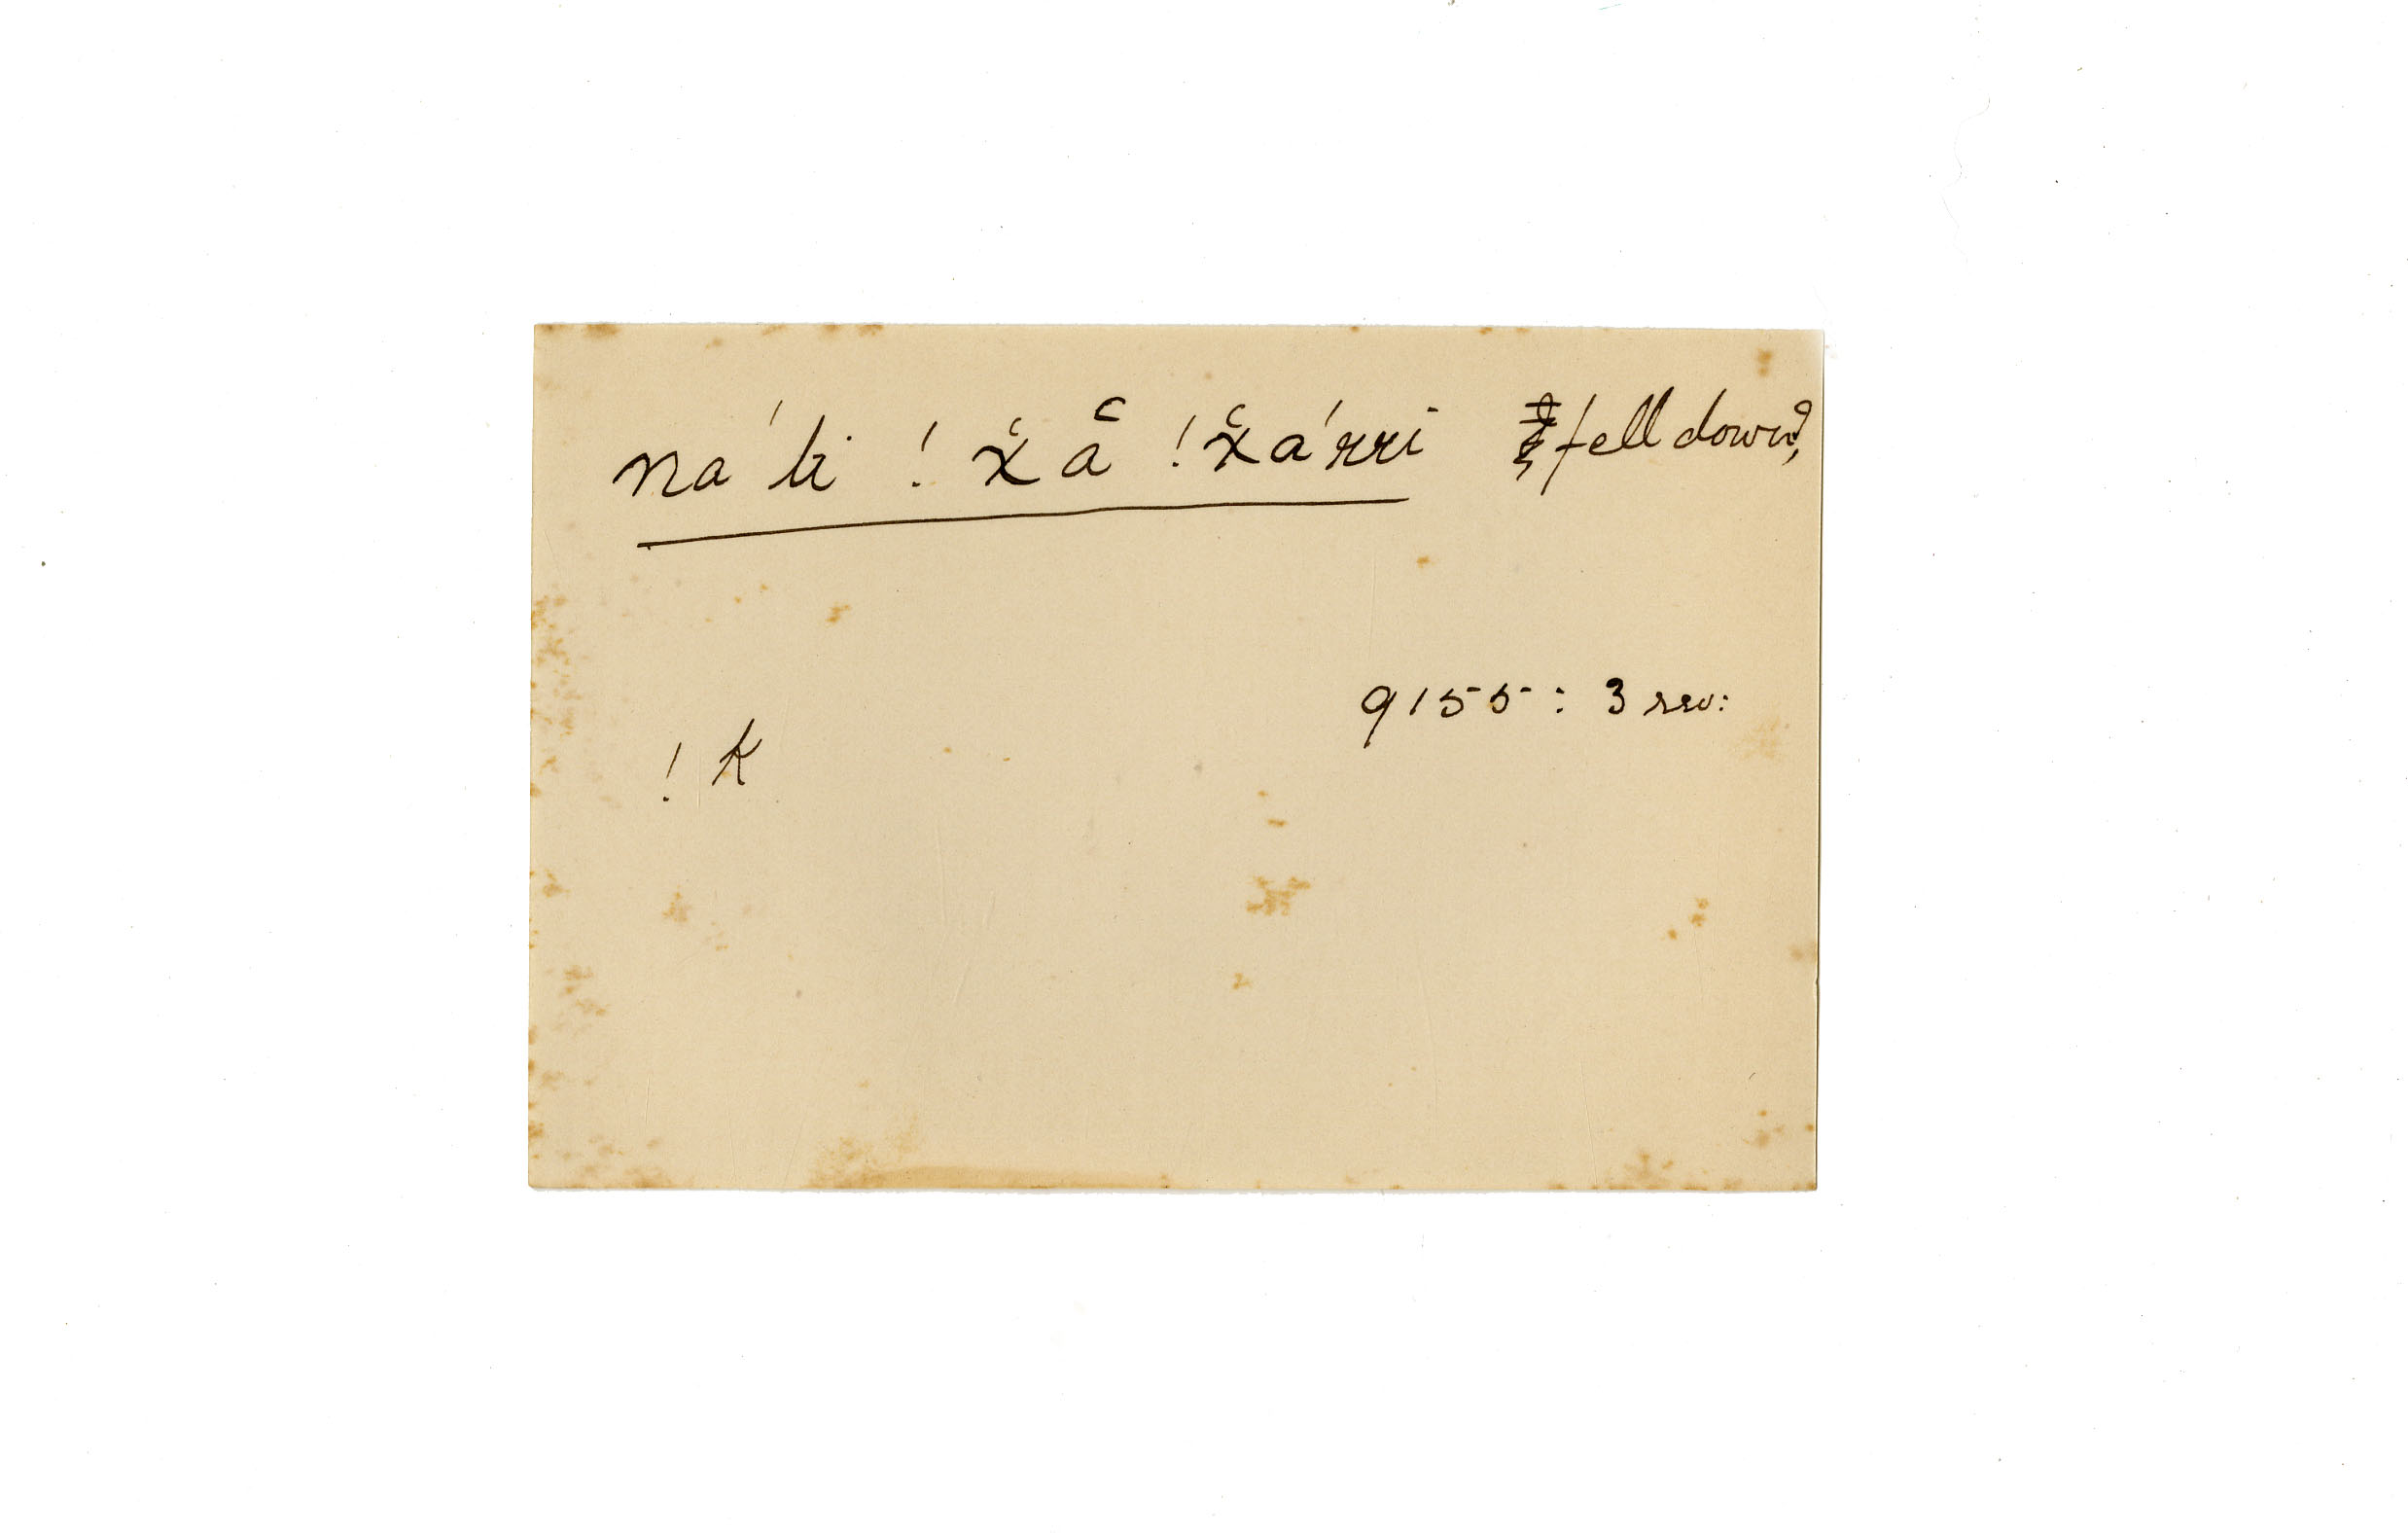 na´ti !χ̆ã !χ̆a´rri fell down?,
9155: 3 rev:
!k